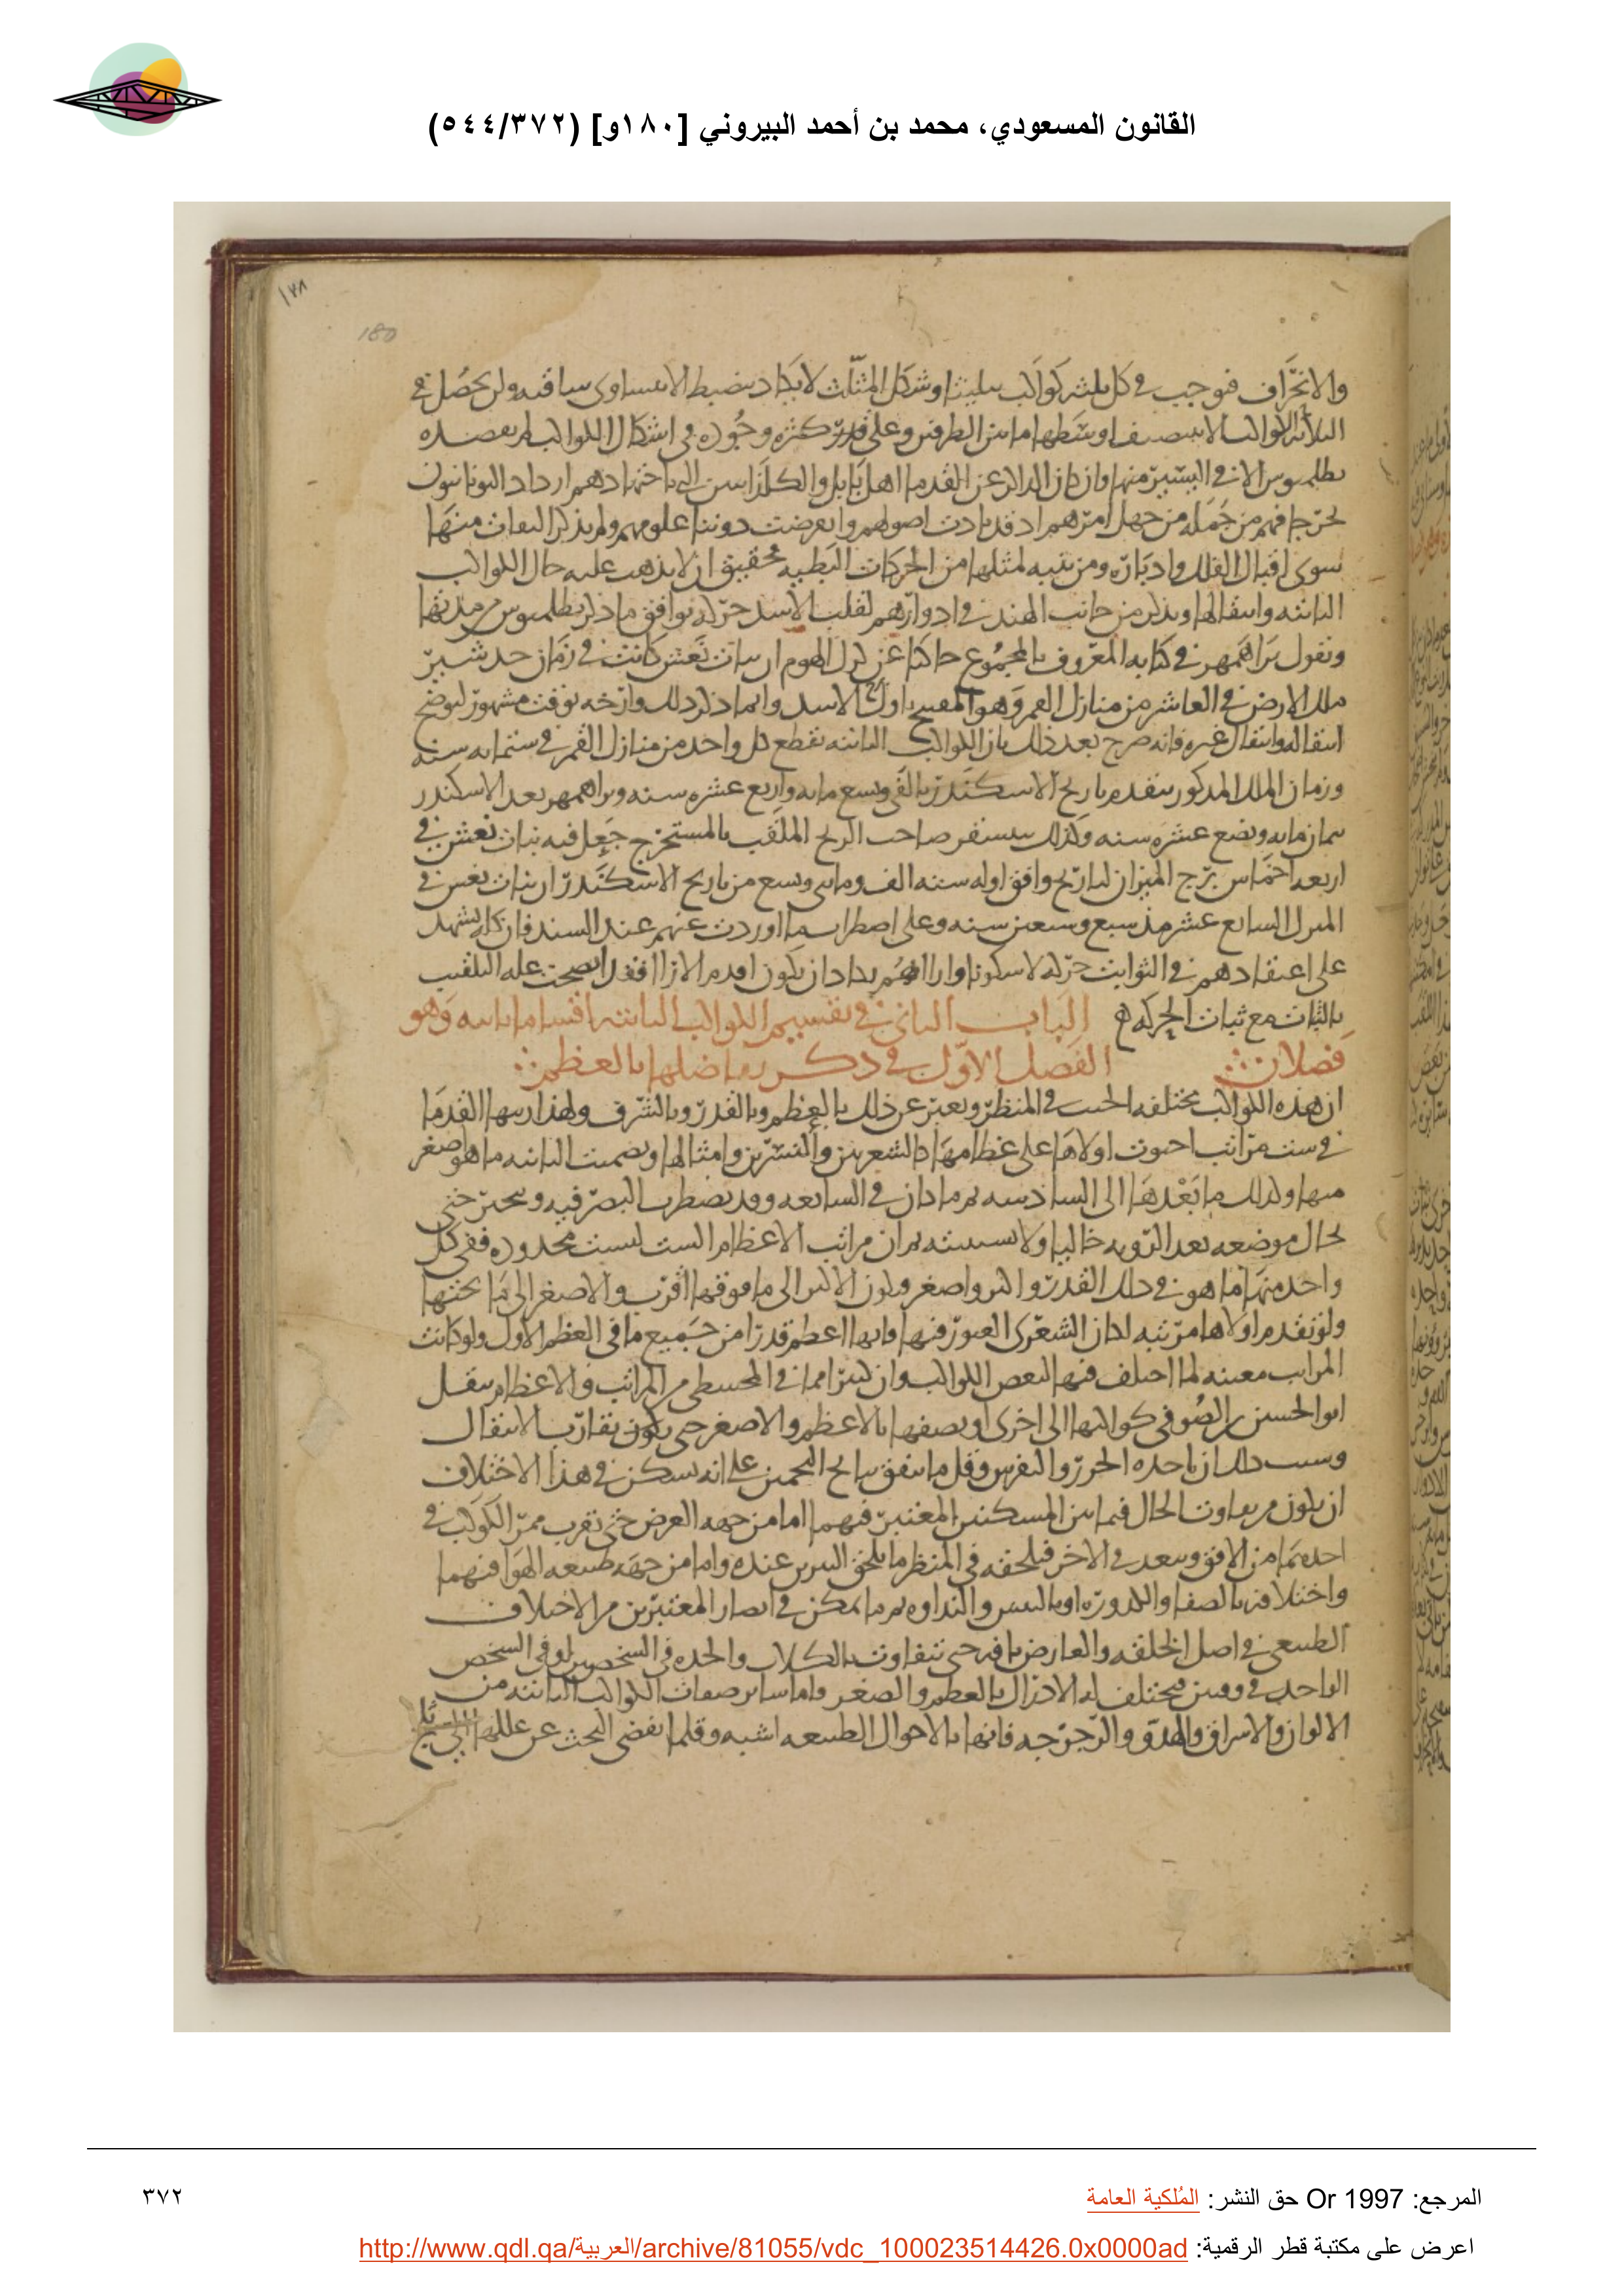 القانون المسعودي، محمد بن أحمد البيروني [١٨٠و] (٥٤٤/٣٧٢)
١٣٨
180
والانحراف فنوجب في كل ثلثه كواكب تثليثا وشكل المثلث لا يكاد ينضبط الا بتساوى ساقيه ولن يحصل في
الثلاثة الكواكب الا بتنصيف اوسطها ما بين الطرفين وعلى قدر كثره وجوده في اشكال الكواكب لم يقصده
بطلميوس الا في اليسير منها وان كان الدائر عن القدما اهل بابل والكلذانيين الى اجتهادهم ازداد اليونانيون
تحرجا فهم من جملة من جهل امرهم اذ قد بادت اصولهم وانقرضت دوننا علومهم ولم يذكر البقات منها
سوى اقبال الفلك وادباره ومن تنبه لمثلها من الحركات البطيه محقيق ان لا يذهب عليه حال الكواكب
الثابته وانتقالها ويذكر من جانب الهند في ادوارهم لقلب الاسد حركه توافق ما ذكر بطلميوس من مدتها
ويقول براهمهر في كتابه المعروف بالمجموع حاكيا عن كرك الهوم ان بنات نعش كانت في زمان جدشتر
ملك الارض في العاشر من منازل القمر وهو اول الاسد وانما ذكر ذلك وارخه بوقت مشهور ليوضح
انتقاله وانتقال غيره فانه صرح بعد ذلك بان الكواكب الثابته تقطع كل واحد من منازل القمر في ستمايه سنه
وزمان الملك المذكور يتقدم تاريخ الاسكندر بالفى وتسع مايه واربع عشره سنه وبراهمهر بعد الاسكندر
بثمان مايه وبضع عشره سنه وكذلك صاحب الزيج الملقب بالمستخرج جعل فيه بنات نعش في
اربعه اخماس برج الميزان لتاريخ وافق اوله سنه الف ومايتى وتسع من تاريخ الاسكندر ان بنات نعش في
المنزل السابع عشر مذ سبع وسبعين سنه وعلى اضطراب ما اوردت عنهم عند السند فان كله يشهد
على اعتقادهم في الثوابت حركه لا سكونا واراهم يكاد ان يكون اقدم الارا فقد اتضحت عله التلقيب
بالثبات مع ثبات الحركه ۞ الباب الثانى في تقسيم الكواكب الثابته اقساما ثانيه وهو
فصلان ⁘ الفصل الاول في ذكر تفاضلها بالعظم ⁘
ان هذه الكواكب مختلفه الجسم في المنظر ويعبر عن ذلك بالعظم وبالقدر وبالشرف ولهذا رتبها القدما
في ست مراتب احتوت اولاها على عظامها كالشعريين والنسرين وامثالها وتضمنت الثانيه ما هو اصغر
منها وكذلك ما بعدها الى السادسه ثم ما كان في السابعه وقد يضطرب البصر فيه ويتحير حتى
يخال موضعه بعد الرؤيه خاليا ولا يستثبته ثم ان مراتب الاعظام الست ليست محدوده ففى كل
واحد منها ما هو في ذلك القدر واكبر واصغر ويكون الاكبر الى ما فوقها اقرب والاصغر الى ما تحتها
ولو تقدم اولاها مرتبه لكان الشعرى العبور فيها فانها اعظم قدرا من جميع ما في العظم الاول ولو كانت
المراتب معينه لما اختلف فيها لبعض الكواكب وان كثيرا مما في المجسطى من المراتب والاعظام ينقل
ابو الحسين الصوفى كواكبها الى اخرى او يصفها بالاعظم والاصغر حتى يكون تقارب الانتقال
وسبب ذلك ان ماخذه الحزر والتفرس وقل ما يتفق نتائج التخمين على انه يمكن في هذا الاختلاف
ان يكون من تفاوت الحال فيما بين المسكنين المعتبر فيهما اما من جهه العرض حتى يقرب ممر الكواكب في
احدهما من الافق ويبعد في الاخر فيلحقه في المنظر ما يلحق النيرين عنده واما من جهه طبيعه الهوا فيهما
واختلافه بالصفا والكدوره او باليبس والنداوه ثم ما يمكن في ابصار المعتبرين من الاختلاف
الطبيعى في اصل الخلقه والعارض بافه حتى تتفاوت بالكلال والحده في الشخصين او في الشخص
الواحد في وقتين فيختلف له الادراك بالعظم والصغر واما سائر صفات الكواكب الثابته من
الالوان والاشراق والهدو والرجرجه فانها بالاحوال الطبيعيه اشبه وقلما يفضى البحث عن عللها الى ثلج
المرجع: Or 1997 حق النشر: المُلكية العامة
٣٧٢
اعرض على مكتبة قطر الرقمية: http://www.qdl.qa/العربية/archive/81055/vdc_100023514426.0x0000ad